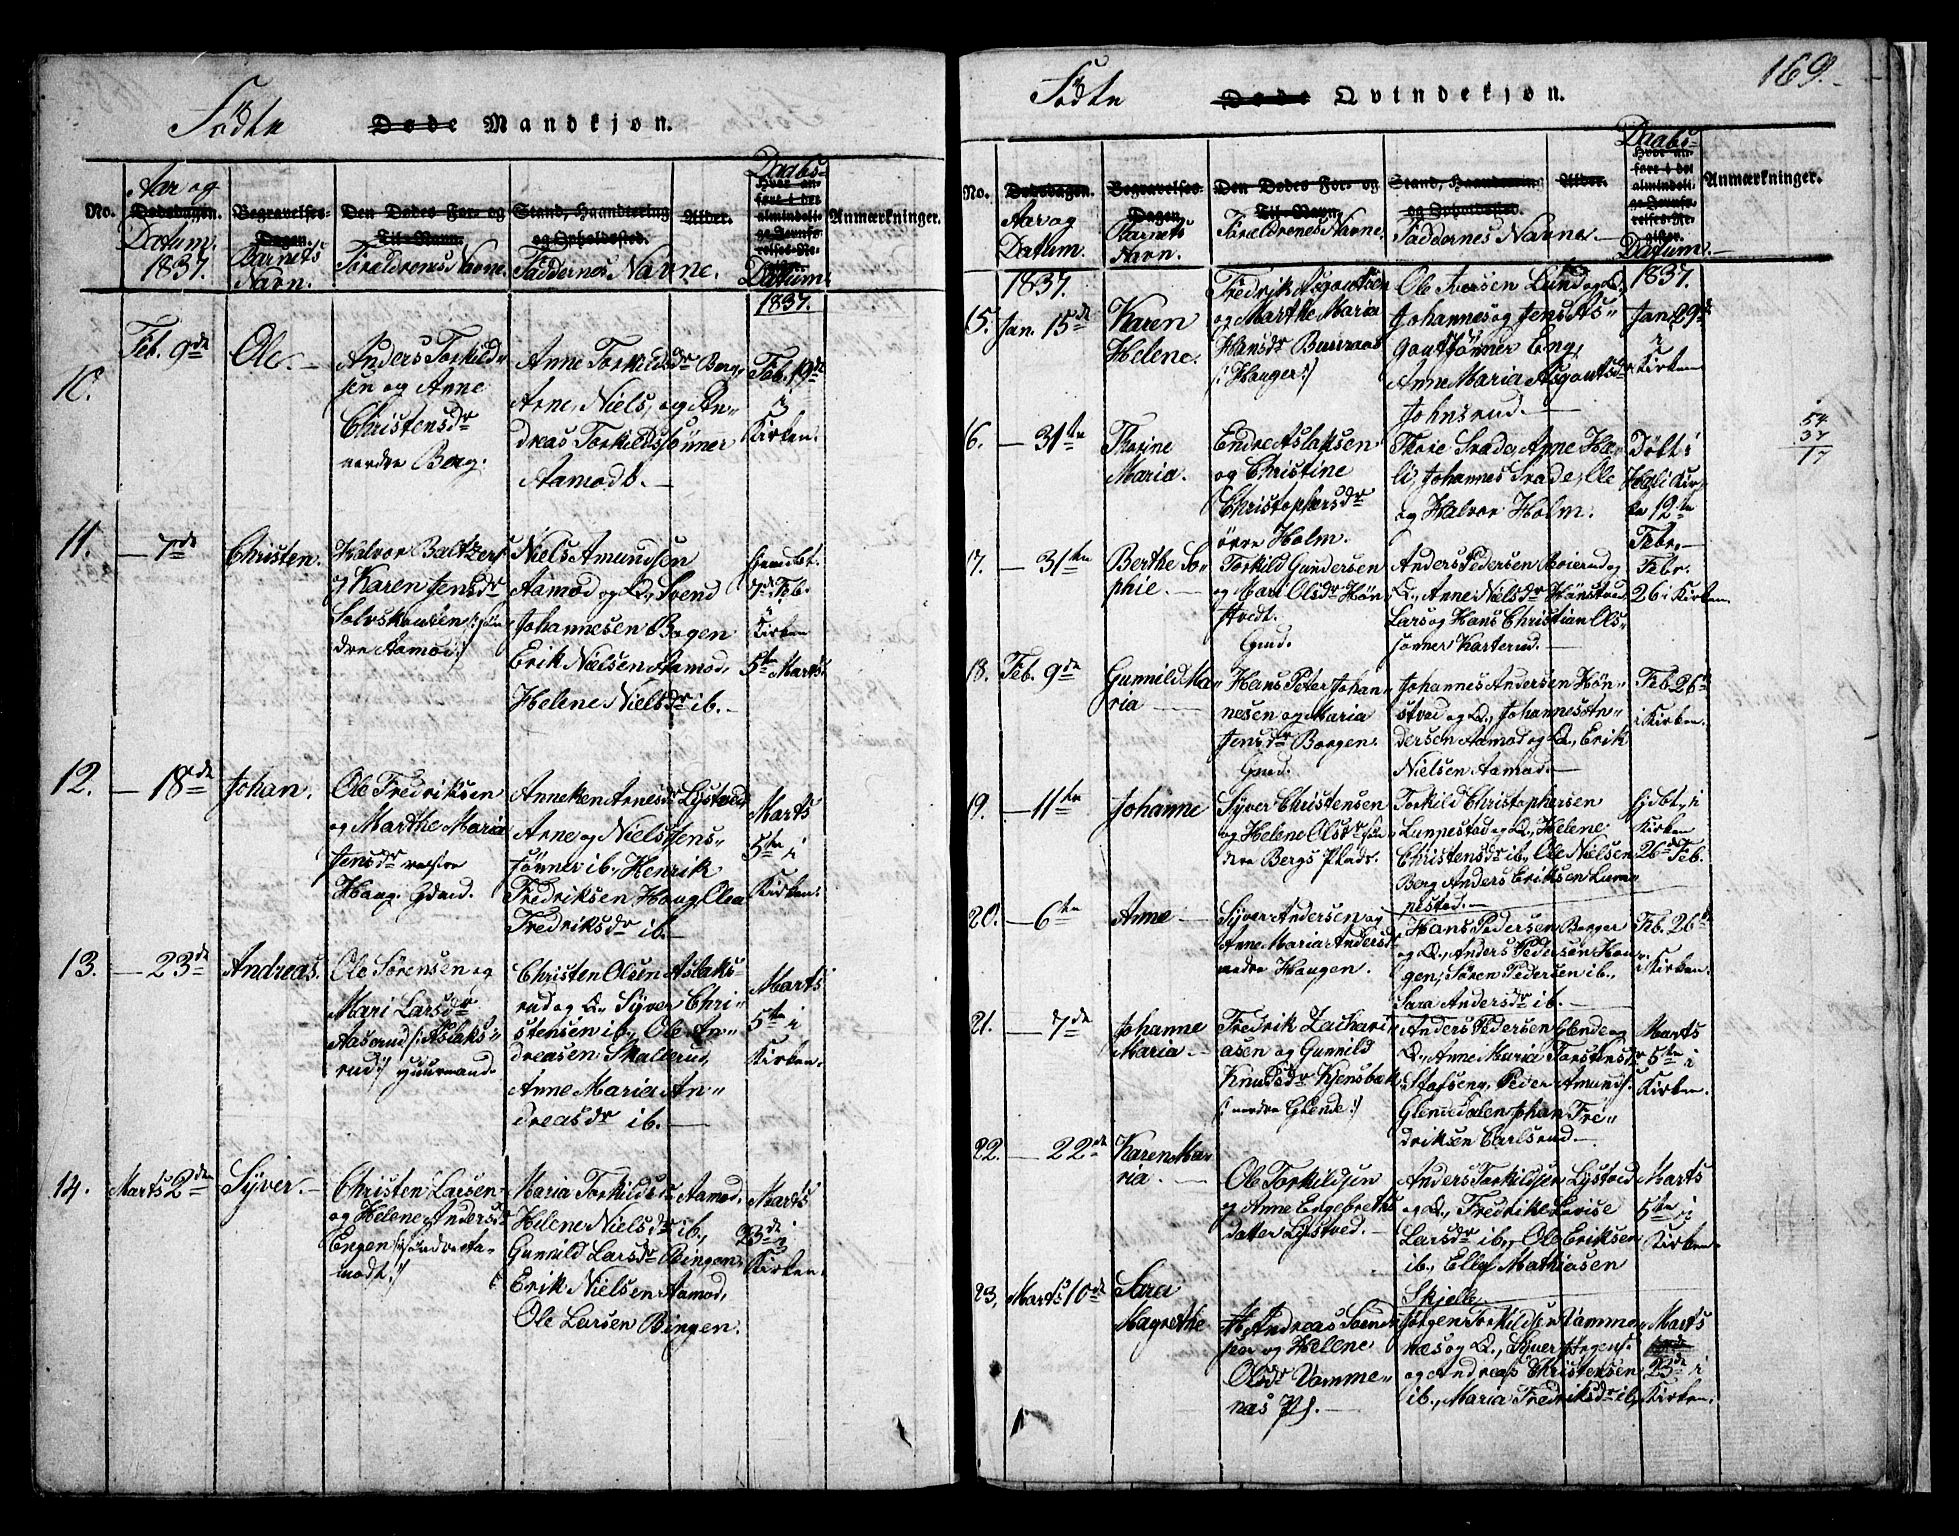 Fødte Døde Mandkjøn.
No.
Aar og
Dødsdagen.
Datum.
1837.
Begravelses-
Dagen.
Barnets
Navn.
Den Dødes For- og
Til-Navn.
Forældrenes Navne.
Stand, Haandtering
og Opholdssted.
Faddernes Navne.
Alder.
Daabs-
Hvor an-
ført i det
almindeli-
ge Jevnfø-
relses-Re-
gister.
Datum.
1837.
Anmærkninger.
10.
Feb. 9de
Ole.
Anders Torkild-
sen og Anne
Christensdr
nordre Berg.
Anne Torkildsdr Berg,
Arne, Niels, og An-
dreas Torkildssønner
Aamodt.
Feb. 19de
i
Kirken.
11.
— 7de
Christen.
Halvor Baltzers
og Karen Jensdr
Niels Amundsen
Aamod og Q., Svend
Johannesen Bogen
Erik Nielsen Aamod,
Helene Nielsdr ib.
hjemdbt.
7de Feb.
Kirken
5te Marts.
dre Aamod:/
12.
— 18de
Johan.
Ole Fredriksen
og Marthe Maria
Jensdr
Haug. Gdmd.
Anneken Arnesdr Lystved
Arne og Niels Jens-
sønner ib., Henrik
Fredriksen Haug, Olea
Fredriksdr ib.
Marts
5te i
Kirken.
13.
— 23de
Andreas.
Ole Sørensen og
Mari Larsdr
Aaserud /: Aslaks-
rud:/
Christen Olsen Aslaks-
rud og Q., Syver Chri-
stensen ib., Ole An-
dreasen Skallerud,
Anne Maria An-
dreasdr ib.
Marts
5te i
Kirken.
14.
Marts 2den
Syver.
Christen Larsen
og Helene Andersdr
Engen /: søndre Aa-
modt:/
Maria Torkildsdr Aamod,
Helene Nielsdr ib.,
Gunnild Larsdr Bingen,
Erik Nielsen Aamod,
Ole Larsen Bingen.
Marts
23de i
Kirken.
169.
Fødte Døde Qvindekjøn.
No.
Dødsdagen.
Aar og
Datum.
Begravelses-
Dagen.
Barnets
Navn.
Den Dødes For- og
Til-Navn.
Forældrenes Navne.
Stand, Haandtering
og Opholdssted.
Faddernes Navne.
Alder.
Daabs-
Hvor an-
ført i det
almindeli-
ge Jevnfø-
relses-Re-
gister.
Datum.
Anmærkninger.
1837.
1837.
15.
Jan. 15de
Karen
Helene.
Fredrik Asgoutsen
og Marthe Maria
Hansdr Burraas
/: Hauger:/
Ole Iversen Lund og Q.,
Johannes og Jens As-
goutsønner Eng,
Anne Maria Asgoutsdr
Johnsrud.
Jan. 29de
i
Kirken
16.
— 31te
Thorine
Maria.
Endre Aslaksen
og Christine
Christophersdr
øvre Holm.
Thore Srade, Anne Hæ-
li, Johannes Srade, Ole
og Halvor Holm.
Døbt i
Kir-
ke 12te
Febr.
54
37
17
17.
— 31te
Berthe So-
phie.
Torkild Gundersen
og Mari Olsdr Høn-
stvedt.
Gmd.
Anders Pedersen Moierud og
Q., Anne Nielsdr Hønstved,
Lars og Hans Christian Ols-
sønner Kasterud.
Febr.
26 i Kirken
18.
Feb. 9de
Gunnild Ma-
ria
Hans Peter Johan-
nesen og Maria
Jensdr Borgen.
Gmd.
Johannes Andersen Høn-
stved og Q., Johannes An-
dersen Aamod og Q., Erik
Nielsen Aamod.
Feb. 26de
i Kirken.
19.
— 11te
Johanne
Syver Christensen
og Helene Olsdr søn-
dre Bergs Plads.
Torkild Christophersen
Lunnestad og Q., Helene
Christensdr ib., Ole Nielsen
Berg, Anders Eriksen Lun-
nestad.
hjdbt, i
Kirken
26de Feb.
20.
— 6te
Anne
Syver Andersen og
Anne Maria Andersdr
nedre Haugen.
Hans Pedersen Berger
og Q., Anders Pedersen Hau-
gen, Søren Pedersen ib.,
Sara Andersdr ib.
Feb. 26de
i Kirken.
21.
— 7de
Johanne
Maria
Fredrik Zachari-
asen og Gunnild
Knudsdr Kjensbæk
/: nordre Glende:/
Anders Pedersen Glende og
Q., Anne Maria Torstensdr
Stofseng, Peder Amunds.
Glennedalen, Johan Fre-
driksen Carlsrud.
Marts
5te i
Kirken.
22.
— 22de
Karen Ma-
ria.
Ole Torkildsen
og Anne Engebrets-
datter Lystved.
Anders Torkildsen Lystved
og Q., Fredrike Lovise
Larsdr ib., Ole Eriksen
ib., Ellef Mathiasen
Skjelle.
Marts
5te i
Kirken.
23.
Marts 10de
Sara
Magrethe
Andreas Svend-
sen og Helene
Olsdr Vamme-
næs Pl.
Jørgen Torkildsen Vamme-
næs og Q., Syver Jørgens.
og Andreas Christensen
ib., Maria Fredriksdr ib.
Marts
23de i
Kirken.